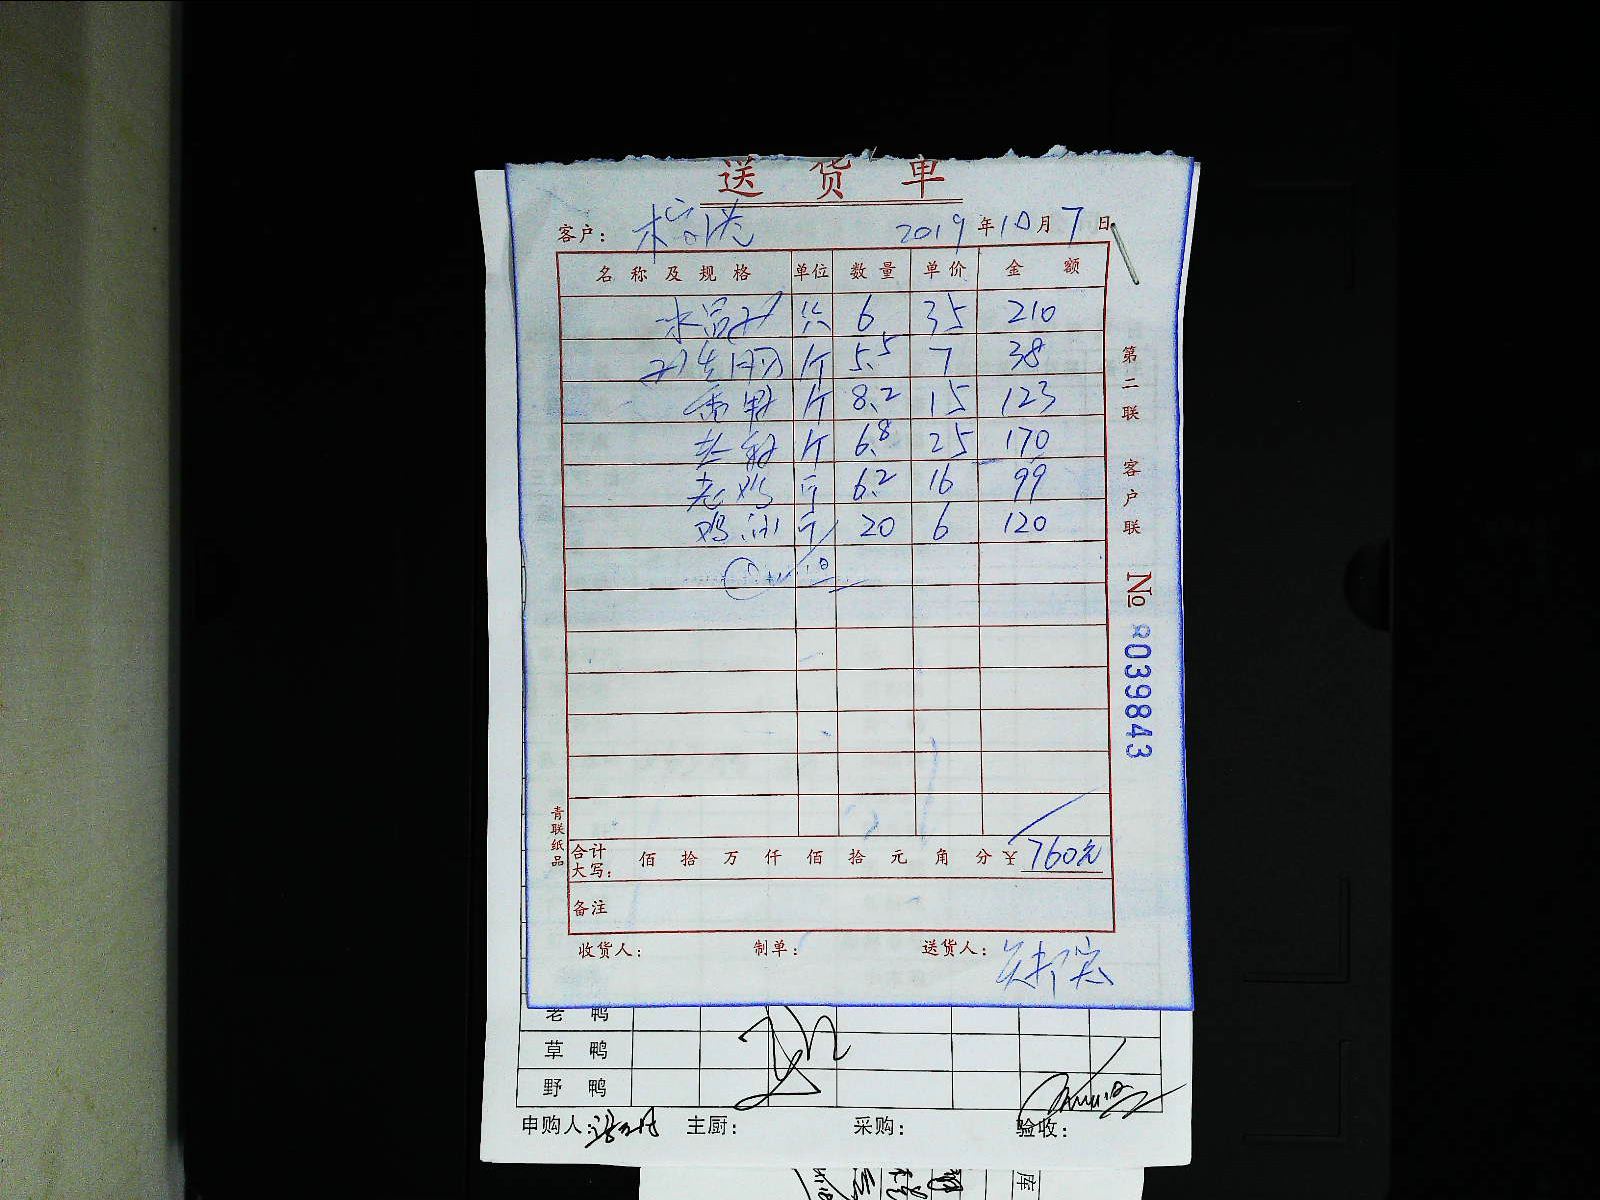 送货单
客户： 2019年10月7日
名称及规格 单位 数量 单价 金额
水晶 只 6 35 210
斤 5.5 7 38
番鸭 斤 8.2 15 123
斤 6.8 25 170
老鸡 斤 6.2 16 99
鸡油 斤 20 6 120
合计大写： 佰 拾 万 仟 佰 拾 元 角 分 ¥ 760元
备注
收货人： 制单： 送货人：
第二联 客户联
No 0039843
青联纸品
老鸭
草鸭
野鸭
申购人： 主厨： 采购： 验收：
库